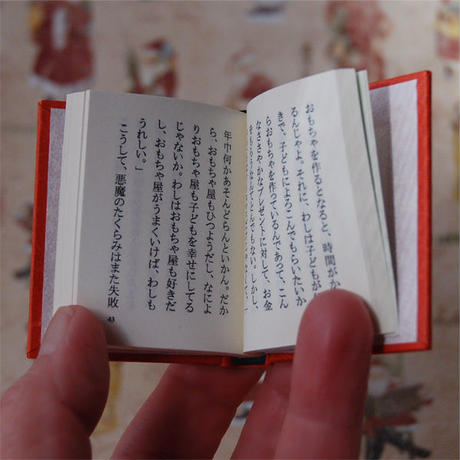 おもちゃを作るとなると、時間がか
るんじゃよ。それに、わしは子どもが
きで、子どもによろこんでもらいたいか
らおもちゃを作っているんであって、こん
なささやかなプレゼントに対して、お金
をもらうなんてとんでもない。しかし、
年中何かあそんどらんといかん。だか
ら、おもちゃ屋もひつようだし、なによ
りおもちゃ屋も子どもを幸せにしてる
じゃないか。わしはおもちゃ屋も好きだ
し、おもちゃ屋がうまくいけば、わしも
うれしい。」
こうして、悪魔のたくらみはまた失敗
43